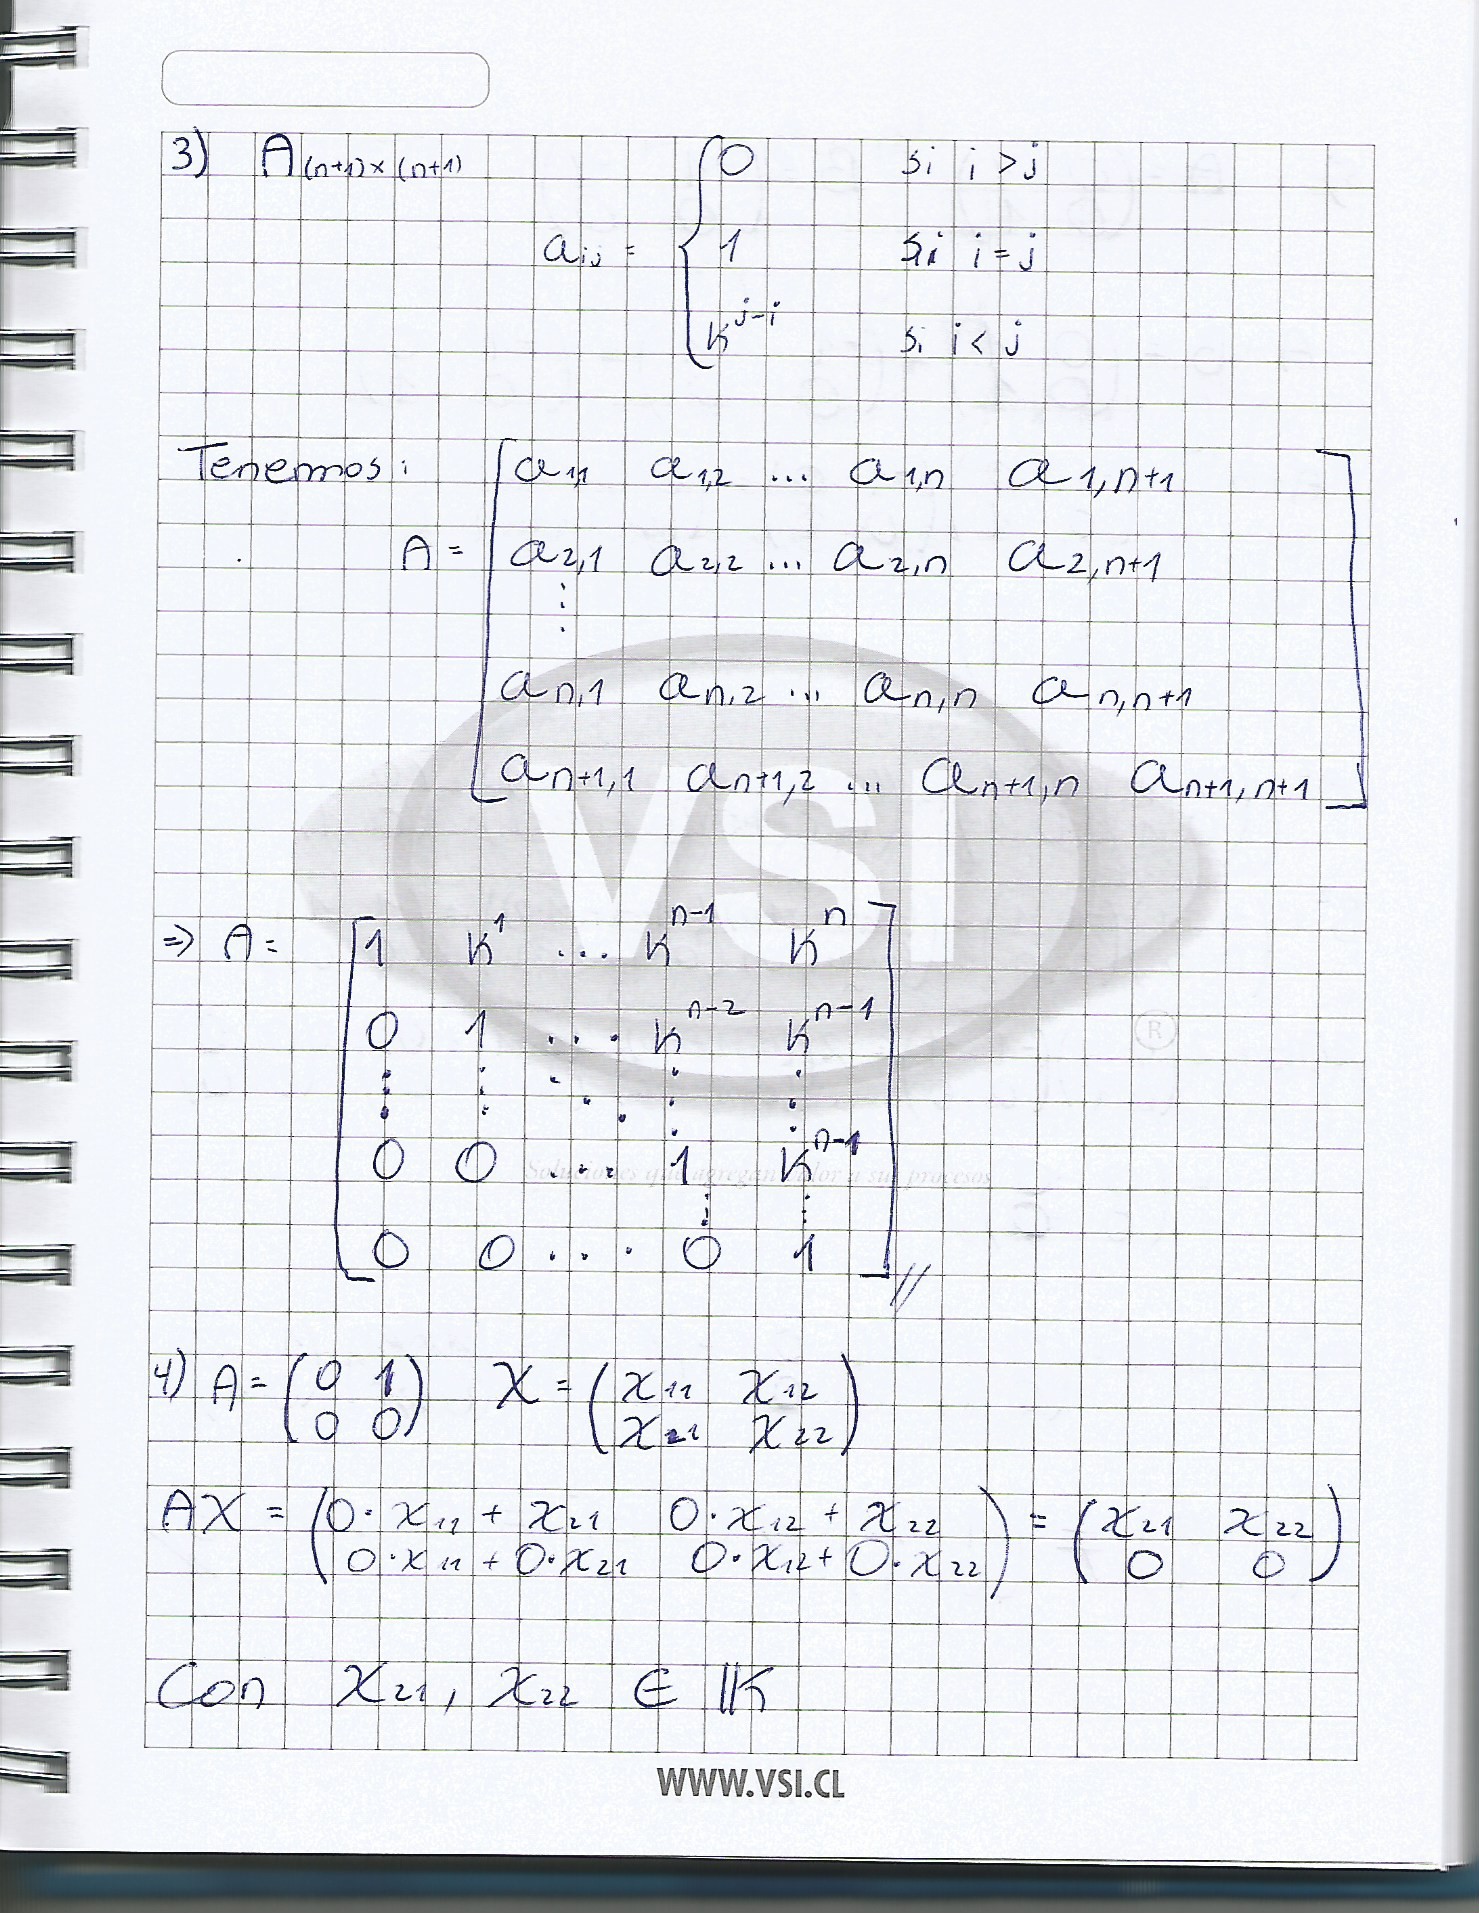 3) A(n+1)×(n+1)
0 si i > j
aij = { 1 si i = j
k^j-i si i < j
Tenemos:
a1,1 a1,2 ... a1,n a1,n+1
A = a2,1 a2,2 ... a2,n a2,n+1
⋮
an,1 an,2 ... an,n an,n+1
an+1,1 an+1,2 ... an+1,n an+1,n+1
VSI
®
⇒ A = 1 k^1 ... k^n-1 k^n
0 1 ... k^n-2 k^n-1
⋮ ⋮ ⋱ ⋮ ⋮
0 0 ... 1 k^n-1
Soluciones que agregan valor a sus procesos
⋮ ⋮
0 0 ... 0 1 //
4) A = (0 1 X = (x11 x12
0 0) x21 x22)
AX = (0·x11 + x21 0·x12 + x22 = (x21 x22
0·x11 + 0·x21 0·x12 + 0·x22) 0 0)
Con x21, x22 ∈ 𝕂
WWW.VSI.CL